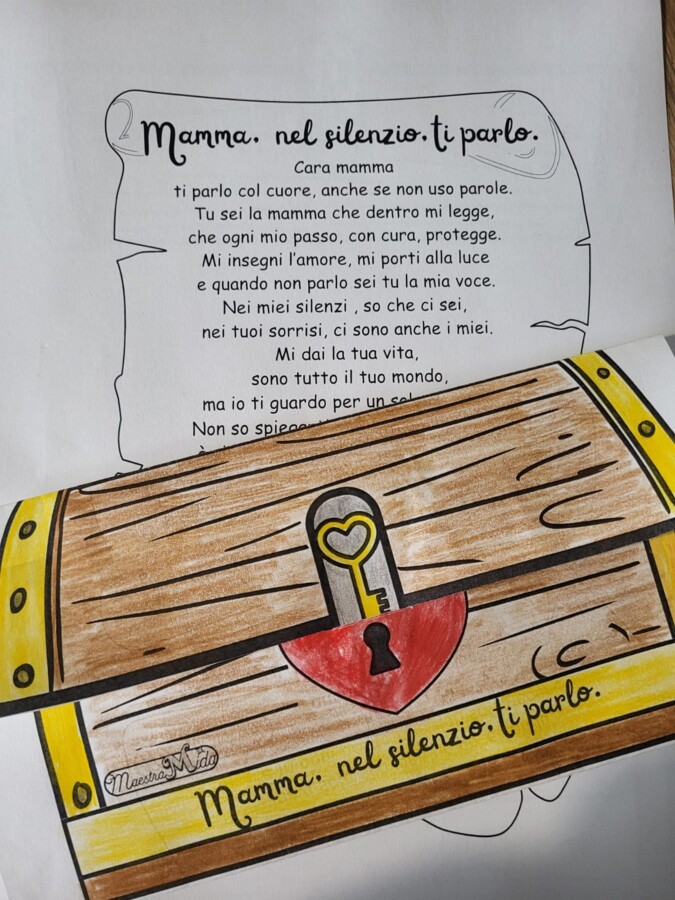 Mamma. nel silenzio. ti parlo.
Cara mamma
ti parlo col cuore, anche se non uso parole.
Tu sei la mamma che dentro mi legge,
che ogni mio passo, con cura, protegge.
Mi insegni l'amore, mi porti alla luce
e quando non parlo sei tu la mia voce.
Nei miei silenzi , so che ci sei,
nei tuoi sorrisi, ci sono anche i miei.
Mi dai la tua vita,
sono tutto il tuo mondo,
ma io ti guardo per un
Non so
Maestra Mida
Mamma. nel silenzio. ti parlo.